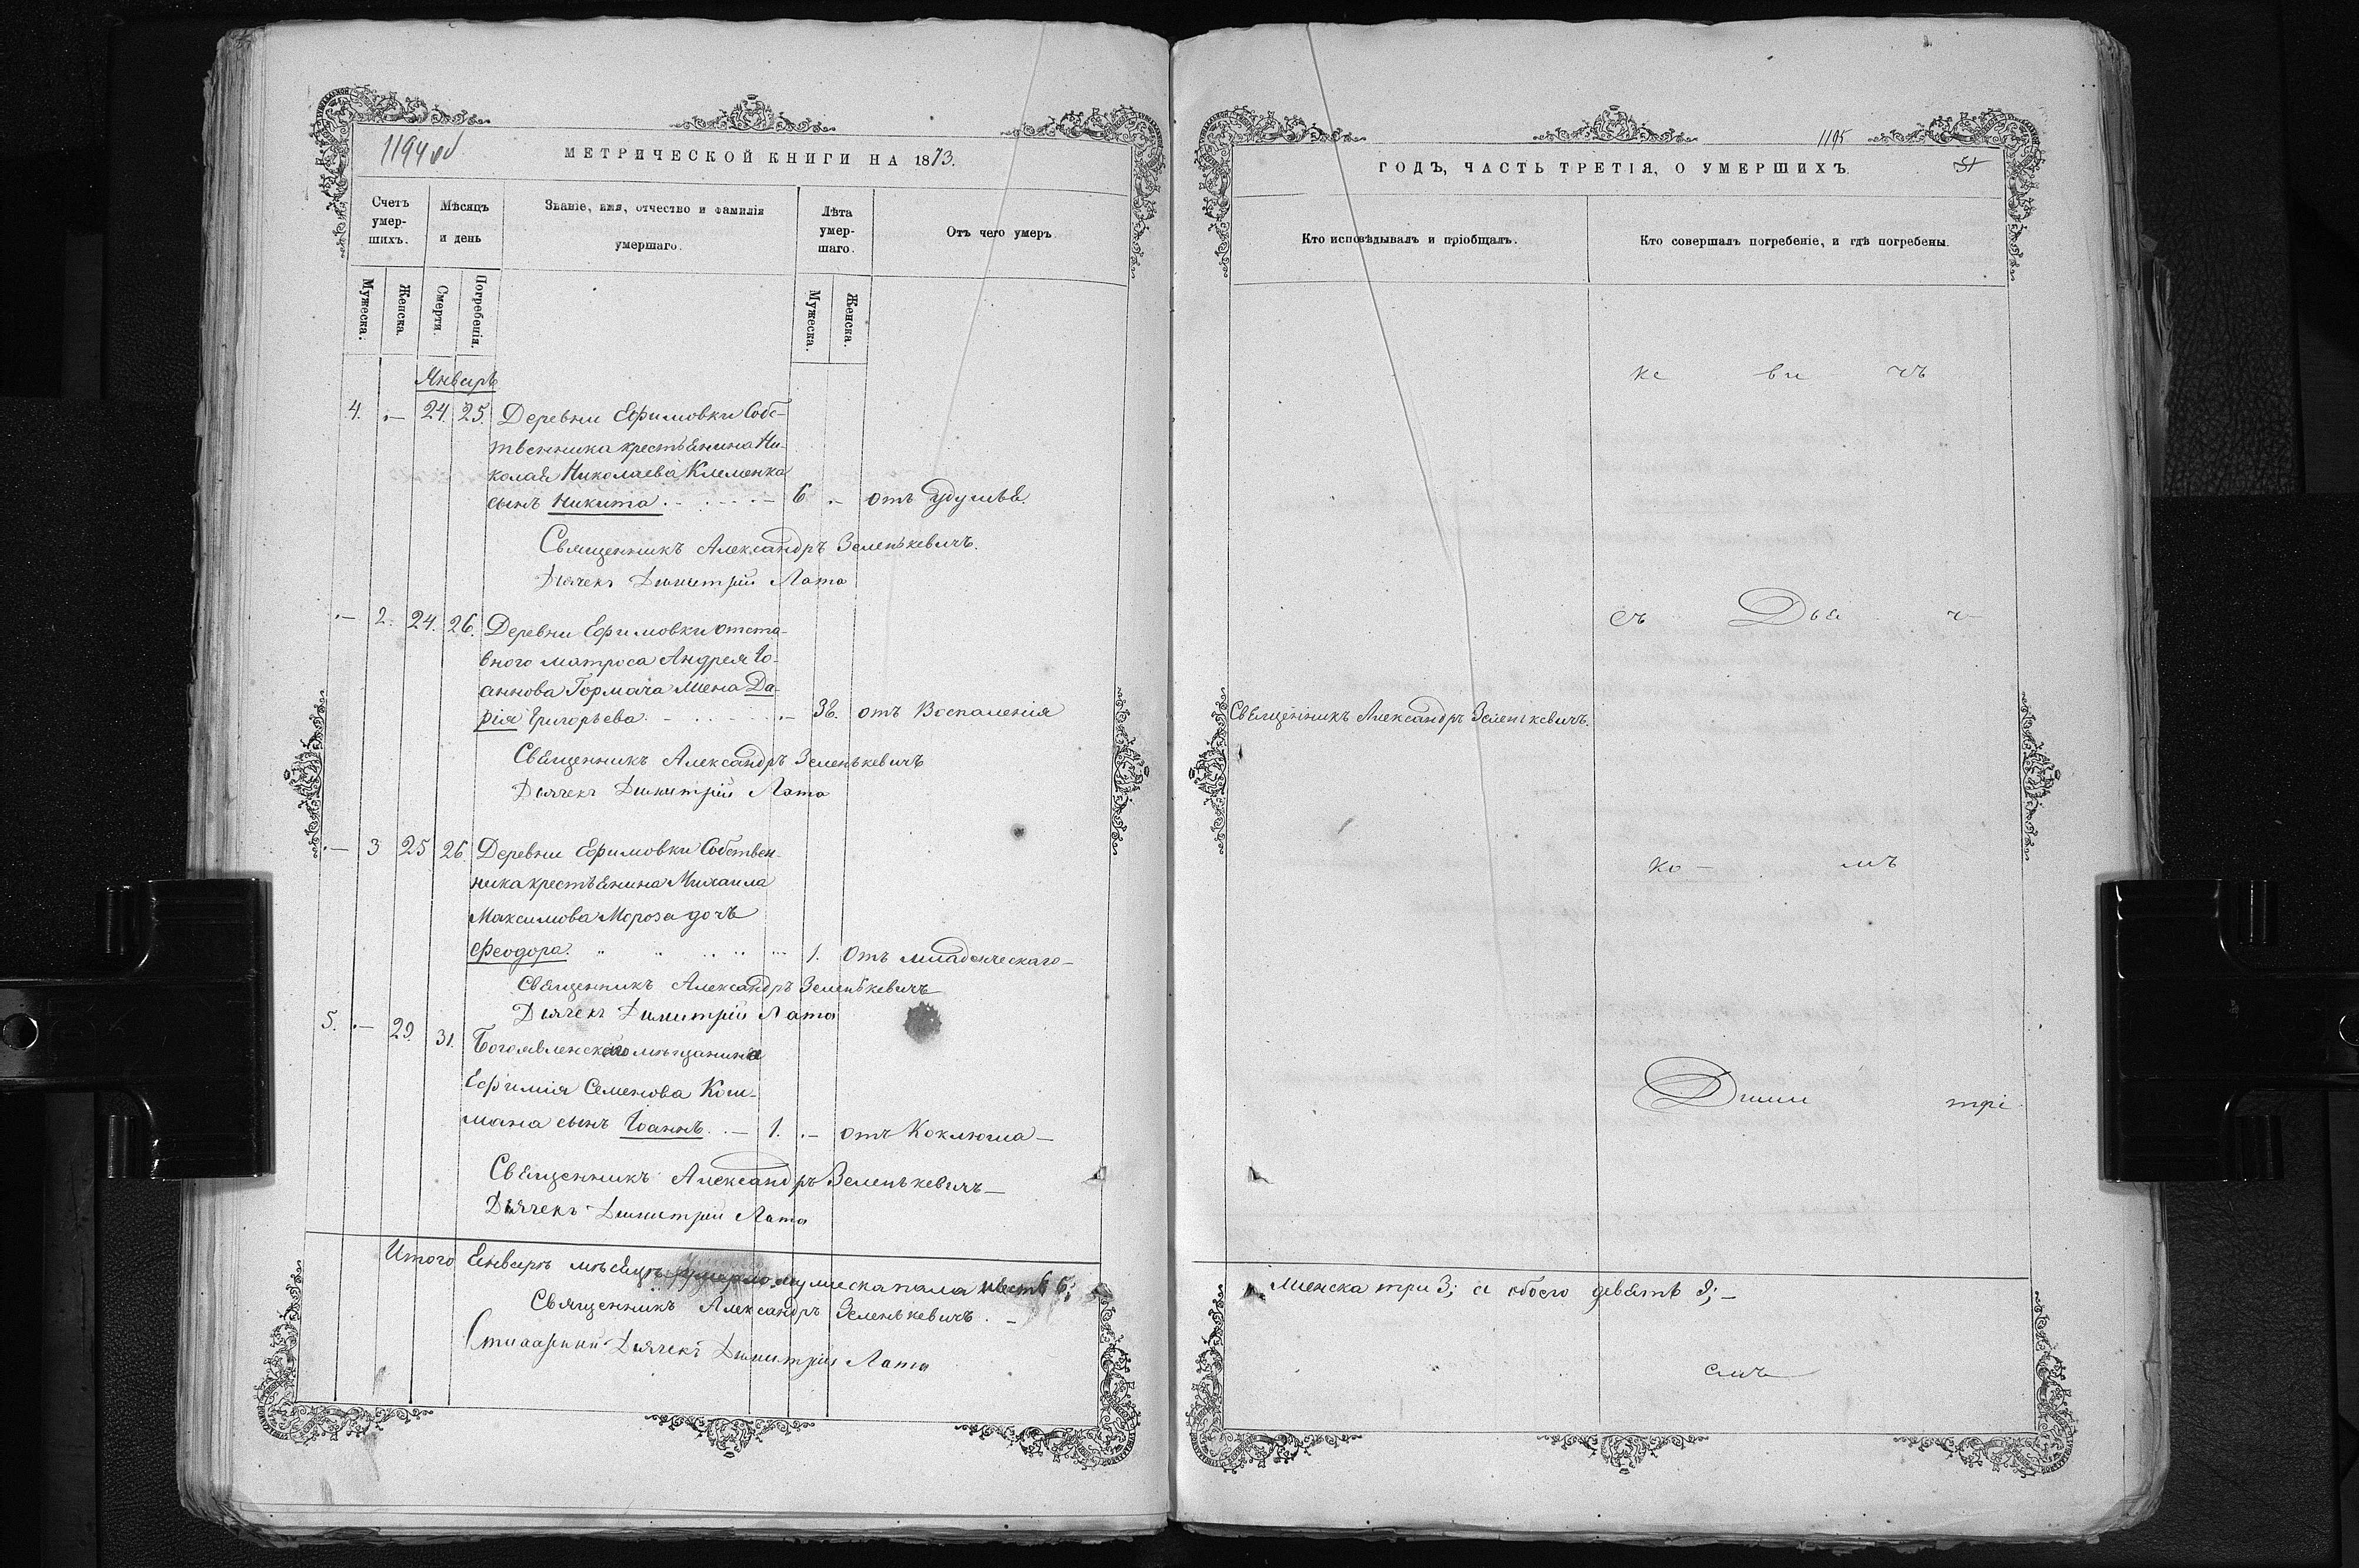 1194 об
МЕТРИЧЕСКОЙ КНИГИ НА 1873.
Счетъ умер-шихъ.
Мѣсяцъ и день
Званіе, имя, отчество и фамилія умершаго.
Лѣта умер-шаго.
Отъ чего умеръ.
Мужеска.
Женска.
Смерти.
Погребенія.
Мужеска.
Женска.
Январь
4. — 24. 25. Деревни Ефимовки Собс-
твенника крестьянина Ни-
колая Николаева Клеменка
сынъ Никита 6 — отъ удушья.
Священникъ Александръ Зеленькевичъ.
Дьячекъ Димитрій Лата
— 2. 24. 26. Деревни Ефимовки отста-
вного матроса Андрея Іо-
аннова Гормача жена Да-
рія Григорьева — 38. отъ Воспаленія
Священникъ Александръ Зеленькевичъ
Дьячекъ Димитрій Лата
— 3 25 26. Деревни Ефимовки Собствен-
ника крестьянина Михаила
Максимова Мороза дочь
Феодора. 1. Отъ младенческаго —
Священникъ Александръ Зеленькевичъ
Дьячекъ Димитрій Лата
5. — 29. 31. Богоявленскаго мѣщанина
Ефимія Семенова Кош-
мана сынъ Іоаннъ. — 1. — отъ Коклюша —
Священникъ Александръ Зеленькевичъ —
Дьячекъ Димитрій Лата
Итого Январь мѣсяцъ умерло мужеска пола шесть 6;
Священникъ Александръ Зеленькевичъ. —
Дьячекъ Димитрій Лата
1195
51
ГОДЪ, ЧАСТЬ ТРЕТІЯ, О УМЕРШИХЪ.
Кто исповѣдывалъ и пріобщалъ.
Кто совершалъ погребеніе, и гдѣ погребены.
ке ви чъ
съ Дья ч
Священникъ Александръ Зеленькевичъ.
ко — мъ
Дими трі
Женска три 3; а обоего девять 9; —
емъ